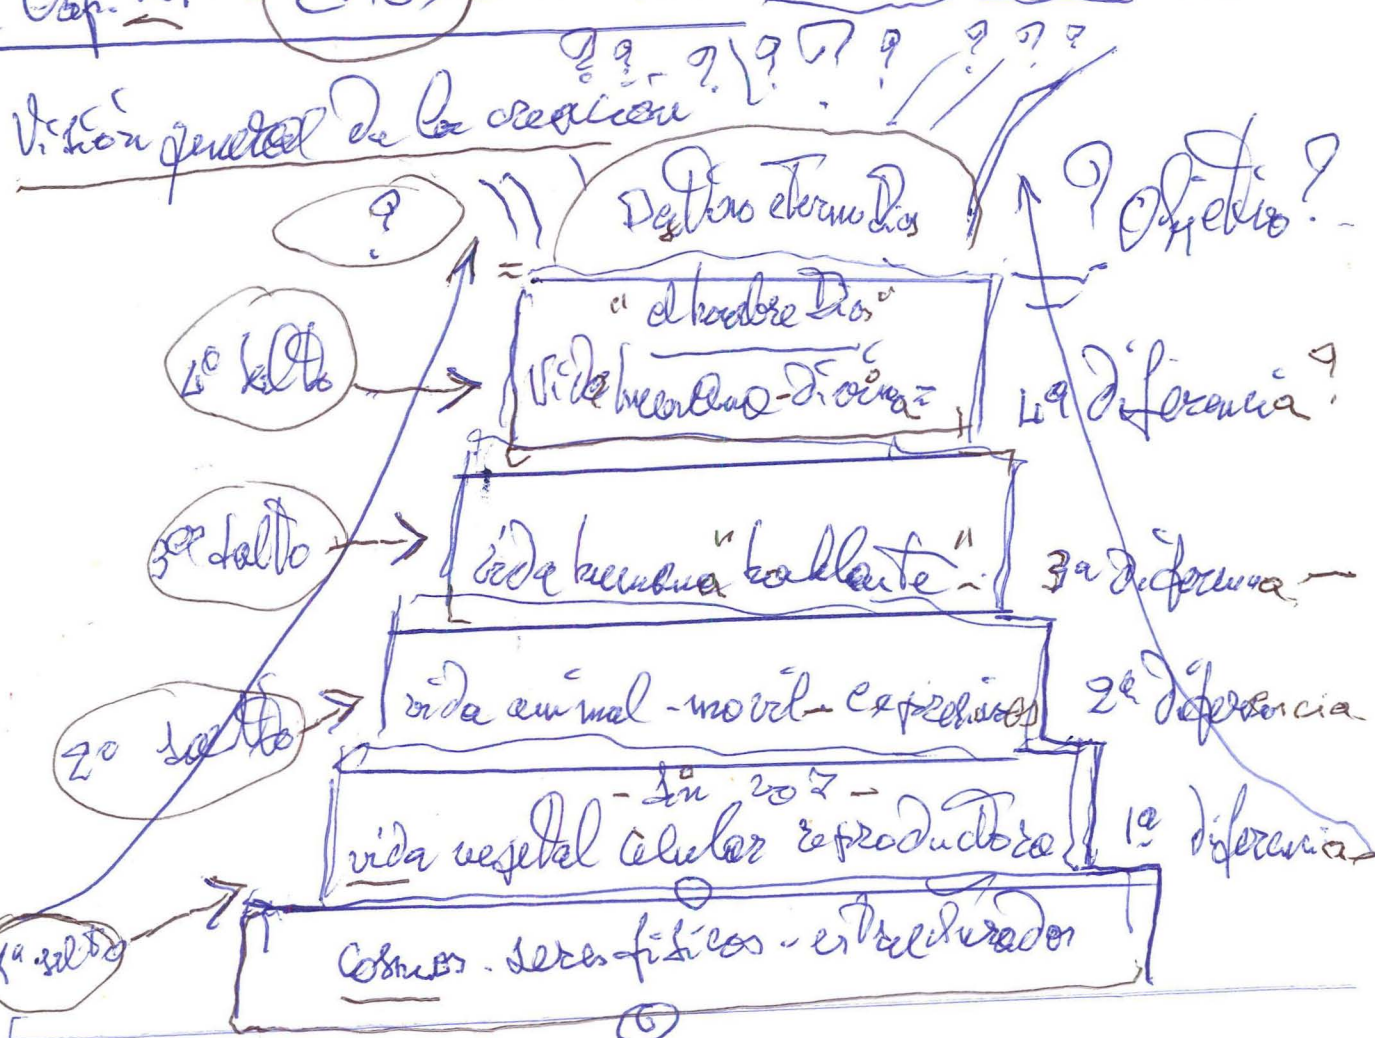 Cap.
Visión general de la creación
? ? ? ? ? ? ? ? ? ?
?
Destino eterno Dios
? Objetivo?
"el hombre Dios"
4º salto
vida humano-divina =
4ª diferencia?
3er salto
vida humana "hablante"
3ª diferencia
2º salto
vida animal - movil - expresivos
2ª diferencia
- sin voz -
vida vegetal celular reproductora
1ª diferencia
1º salto
Cosmos - seres físicos - estructurados